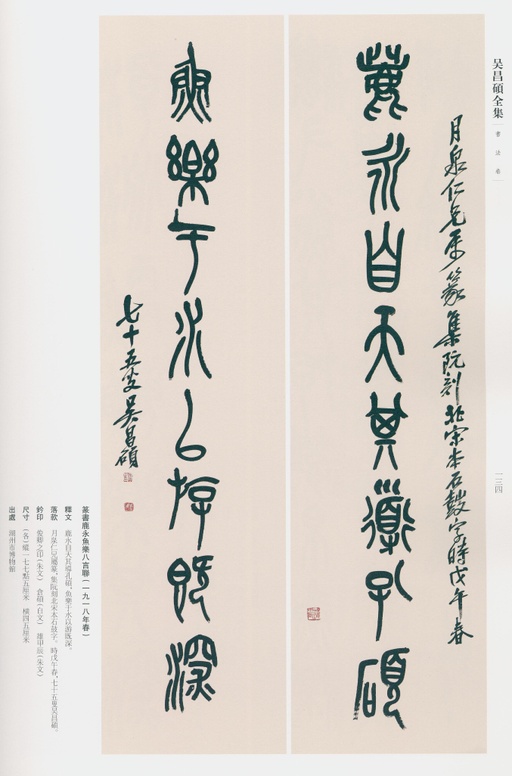 吴昌碩全集
書法卷
一三四
月泉仁兄属篆集阮刻北宋本石鼓字時戊午春
鹿永自天其導孔碩
魚樂于水以游既深
七十五叟吴昌碩
篆書鹿永魚樂八言聯(一九一八年春)
釋文 鹿永自天其導孔碩,魚樂于水以游既深。
落款 月泉仁兄屬篆,集阮刻北宋本石鼓字。時戊午春,七十五叟吴昌碩。
鈐印 俊卿之印(朱文) 倉碩(白文) 雄甲辰(朱文)
尺寸 (各)縱一七七點五厘米 横四五厘米
出處 湖州市博物館